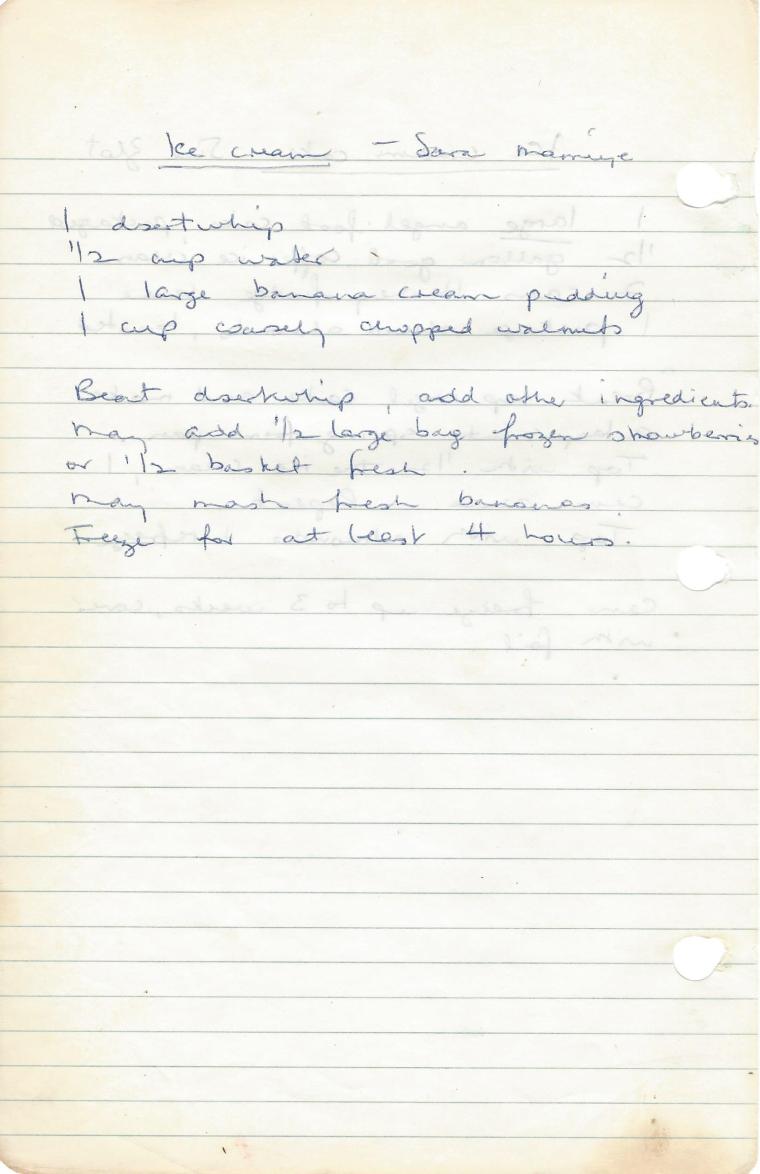 Ice cream - Sara
1 dsertwhip
1/2 cup water
1 large banana cream pudding
1 cup coarsely chopped walnuts
Beat dsertwhip, add other ingredients.
May add 1/2 large bag frozen strawberries
or 1/2 basket fresh.
May mash fresh bananas.
Freeze for at least 4 hours.